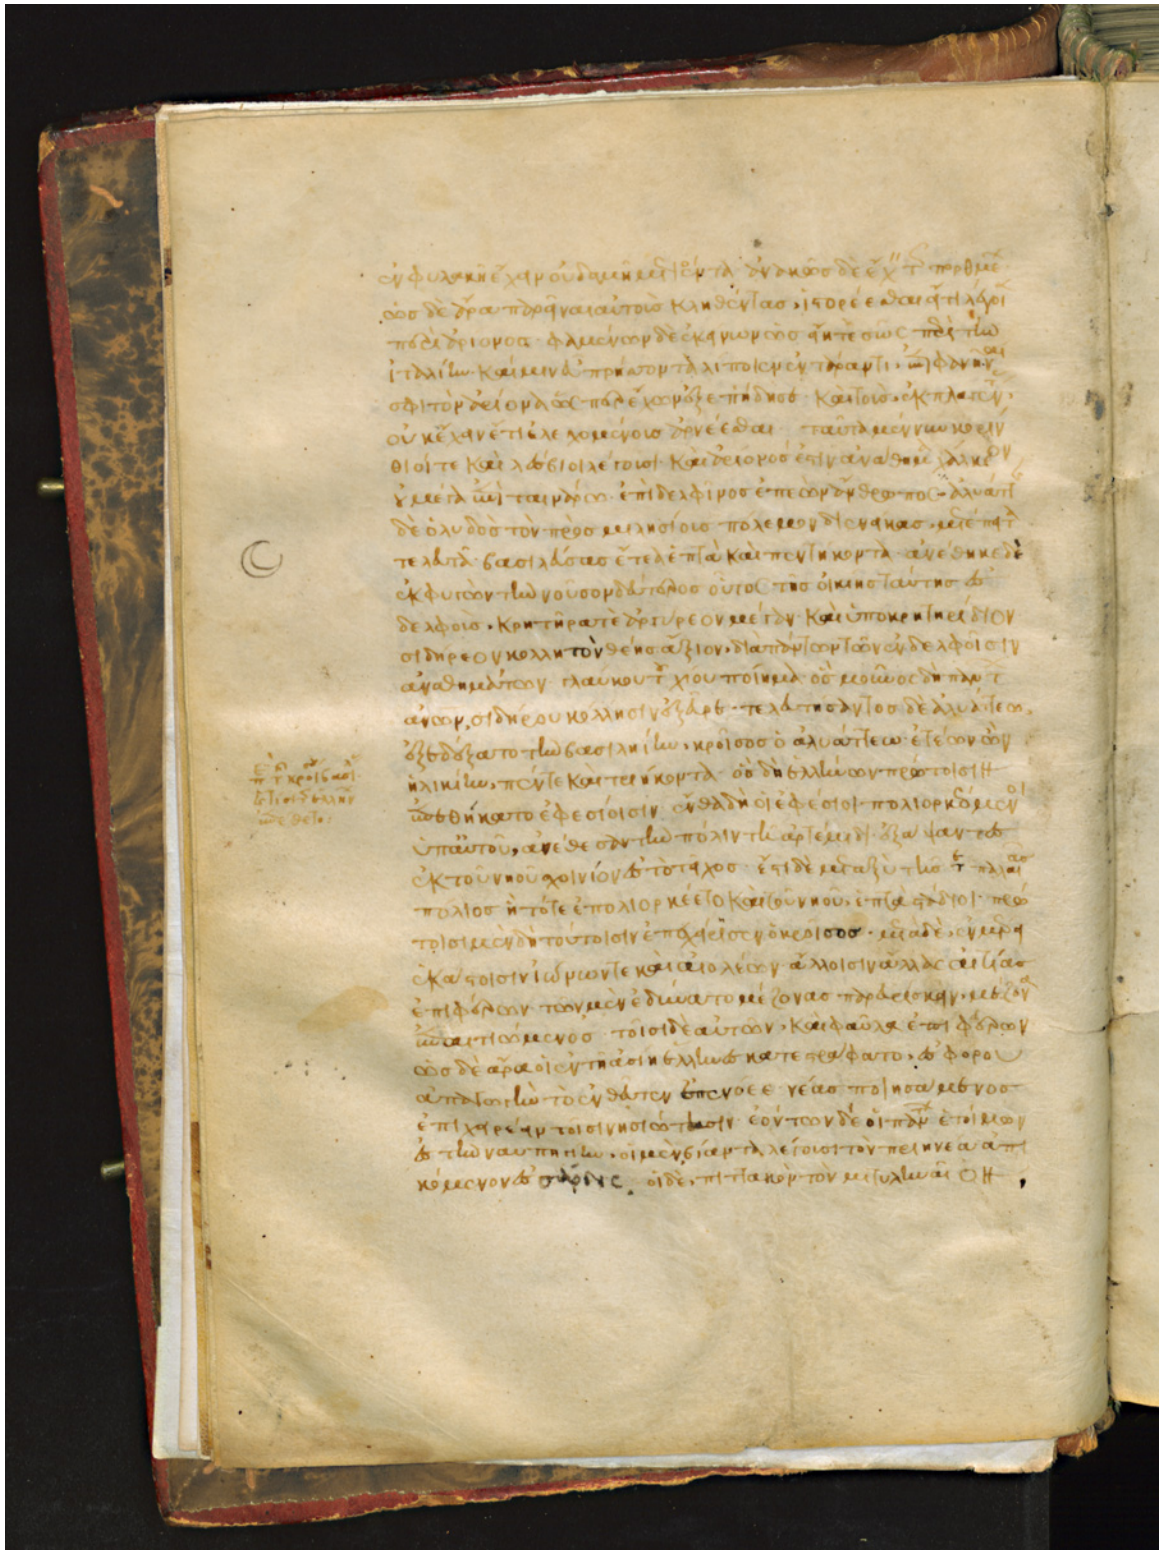 ἐν φυλακῆ ἔχειν οὐδαμῆ μετιέντα· ἀνακῶς δὲ ἔχειν τῶν πορθμέων·
ὡς δὲ ἄρα παρεῖναι αὐτοὺς κληθέντας, ἱστορέεσθαι εἴ τι λέγοιεν
περὶ ἀρίονος· φαμένων δὲ ἐκείνων ὡς εἴη τε σῶς περὶ τὴν
ἰταλίην· καί μιν εὖ πρήσσοντα λίποιεν ἐν τάραντι· ἐπιφανῆναι
σφι τὸν ἀρίονα ὥσπερ ἔχων ἐξεπήδησε· καὶ τοὺς ἐκπλαγέντας,
οὐκ ἔχειν ἔτι ἐλεγχομένους ἀρνέεσθαι· ταῦτα μέν νυν κορίν
θιοί τε καὶ λέσβιοι λέγουσι· καὶ ἀρίονός ἐστιν ἀνάθημα χάλκεον
οὐ μέγα ἐπὶ ταινάρω· ἐπὶ δελφῖνος ἐπεὼν ἄνθρωπος· ἀλυάττης
δὲ ὁ λυδὸς τὸν πρὸς μιλησίους πόλεμον διενείκας, μετέπειτα
τελευτᾶ· βασιλεύσας ἔτεα ἑπτὰ καὶ πεντήκοντα· ἀνέθηκε δὲ
ἐκφυγὼν τὴν νοῦσον δεύτερος οὗτος τῆς οἰκίης ταύτης ἐς
δελφοὺς, κρητῆρά τε ἀργύρεον μέγαν· καὶ ὑποκρητηρίδιον
σιδήρεον κολλητὸν θέης ἄξιον, διὰ πάντων τῶν ἐν δελφοῖσιν
ἀναθημάτων· γλαύκου τοῦ χίου ποίημα· ὃς μοῦνος δὴ πάντων
ἀνθρώπων, σιδήρου κόλλησιν ἐξεῦρε· τελευτήσαντος δὲ ἀλυάττεω,
ἐξεδέξατο τὴν βασιληίην, κροῖσος ὁ ἀλυάττεω· ἐτέων ἐὼν
ἡλικίην, πέντε καὶ τριήκοντα· ὃς δὴ ἑλλήνων πρώτοισι
ἐπεθήκατο ἐφεσίοισιν· ἐνθαῦτα δὴ οἱ ἐφέσιοι πολιορκεόμενοι
ὑπ' αὐτοῦ, ἀνέθεσαν τὴν πόλιν τῆ ἀρτέμιδι· ἐξάψαντες
ἐκ τοῦ νηοῦ σχοινίον ἐς τὸ τεῖχος· ἔστι δὲ μεταξὺ τῆς τε παλαιᾶς
πόλιος ἣ τότε ἐπολιορκέετο καὶ τοῦ νηοῦ, ἑπτὰ στάδιοι· πρώ
τοισι μὲν δὴ τούτοισιν ἐπεχείρησεν ὁ κροῖσος· μετὰ δὲ, ἐν μέρει
ἑκάστοισιν ἰώνων τε καὶ αἰολέων ἄλλοισιν ἄλλας αἰτίας
ἐπιφέρων· τῶν μὲν ἐδύνατο μέζονας παρευρίσκειν, μέζονα
ἐπαιτιώμενος· τοῖσι δὲ αὐτῶν, καὶ φαῦλα ἐπιφέρων·
ὡς δὲ ἄρα οἱ ἐν τῆ ἀσίη ἕλληνες κατεστράφατο, ἐς φόρου
ἀπαγωγὴν· τὸ ἐνθεῦτεν ἐπενόεε νέας ποιησάμενος
ἐπιχειρέειν τοῖσι νησιώτησιν· ἐόντων δέ οἱ πάντων ἑτοίμων
ἐς τὴν ναυπηγίην, οἱ μὲν, βίαντα λέγουσι τὸν πριηνέα ἀπι
κόμενον ἐς σάρδις· οἱ δὲ, πιττακὸν τὸν μιτυληναῖον,